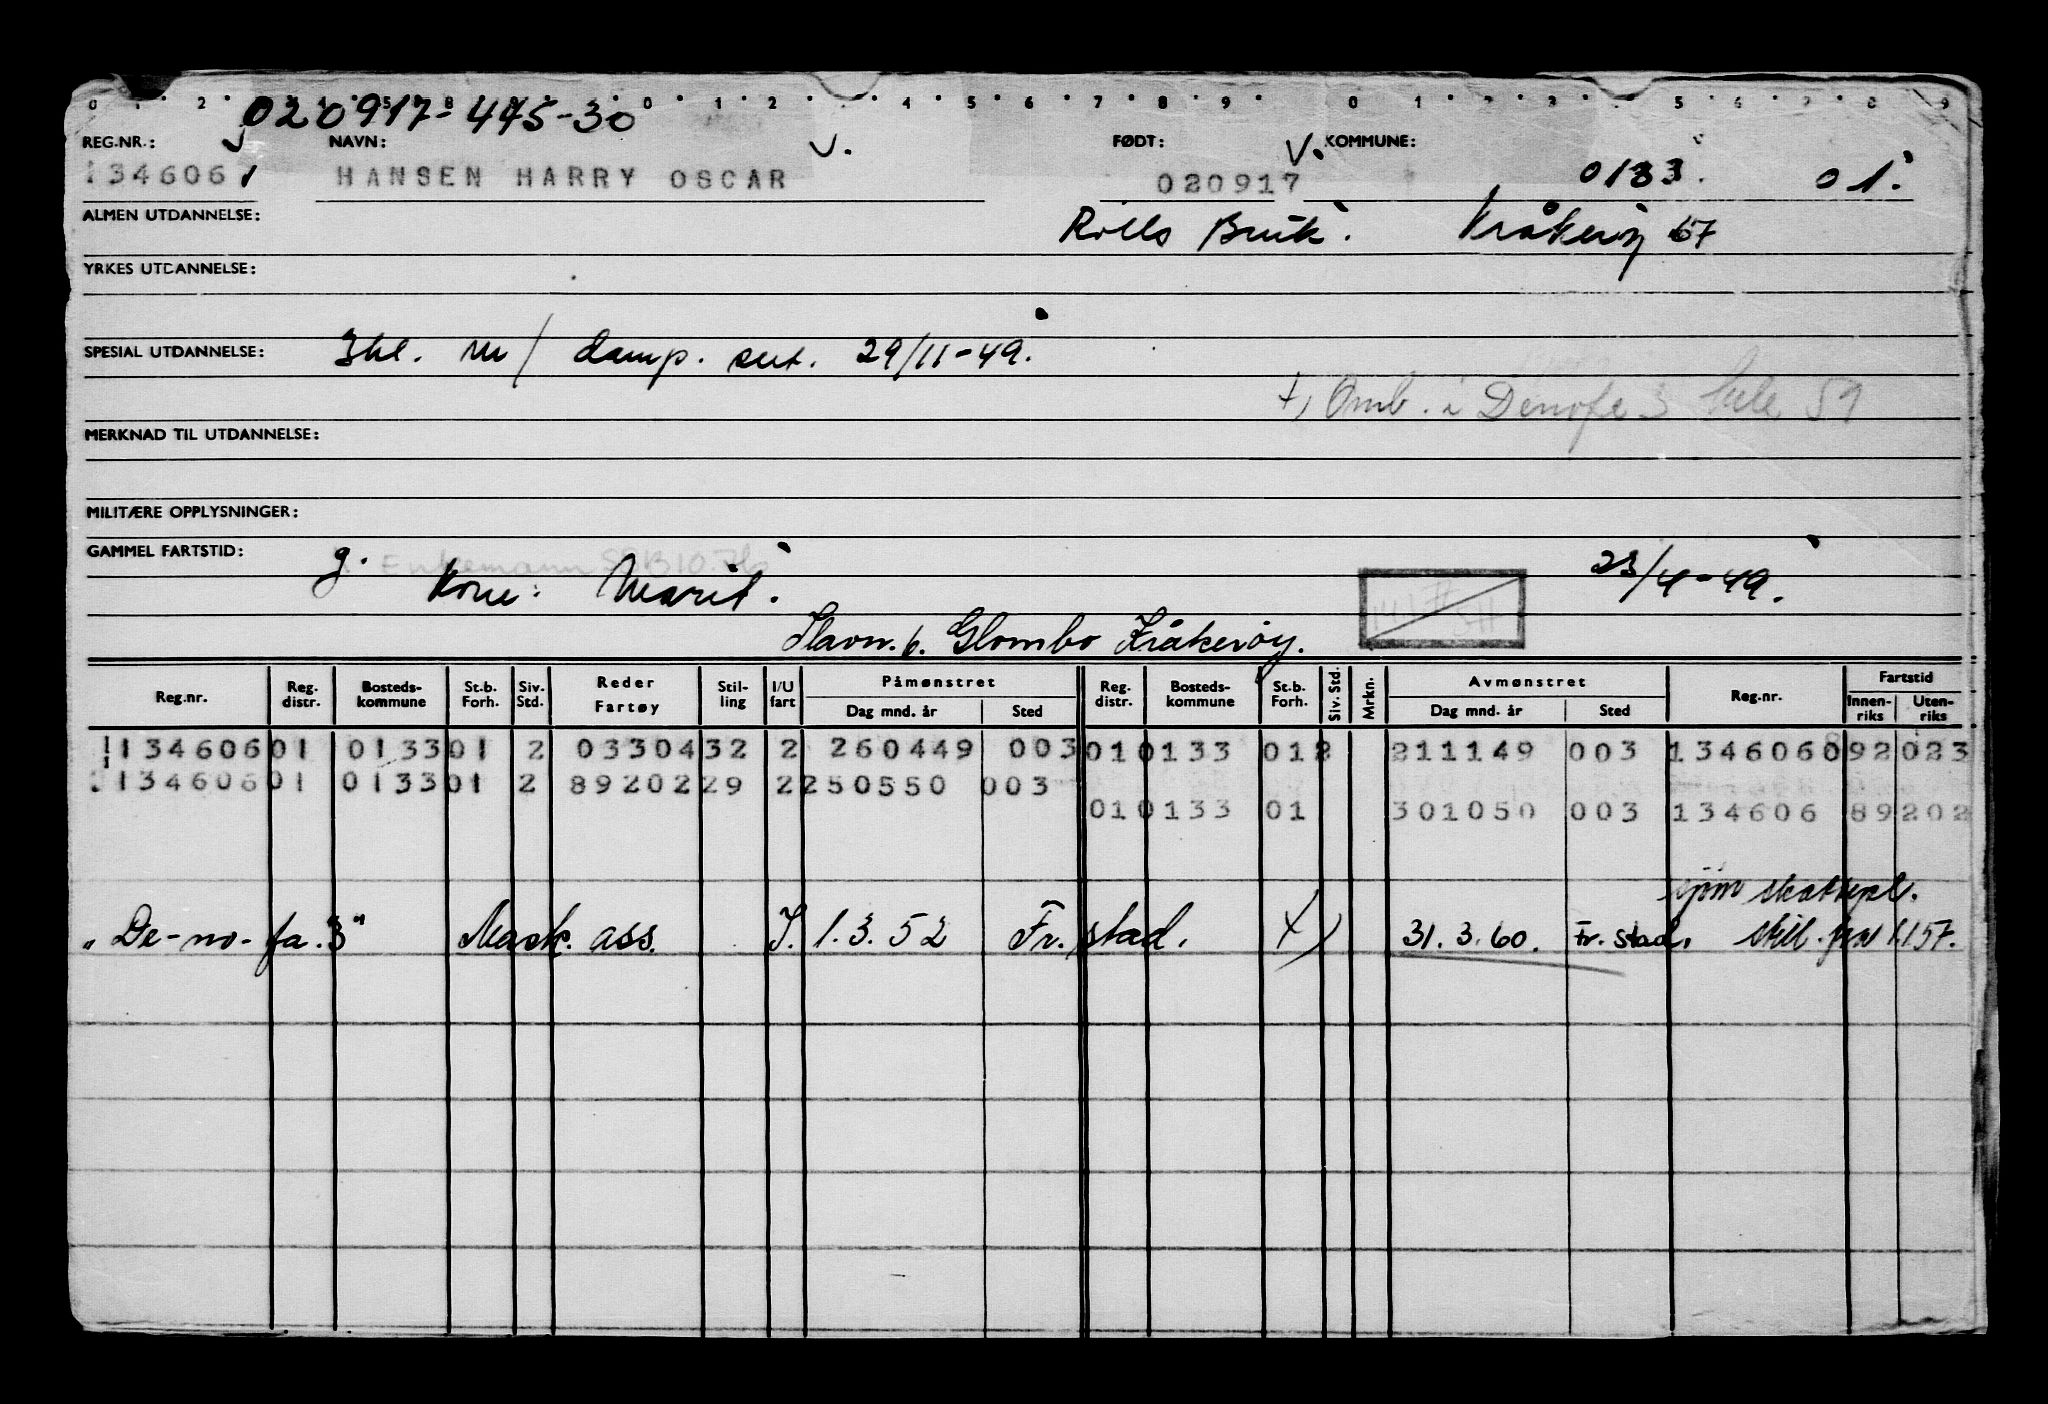 020917-445-30
REG.NR.: NAVN: FØDT: KOMMUNE:
1346061 HANSEN HARRY OSCAR 020917 0133. 01.
ALMEN UTDANNELSE: Rolls Bruk. Kråkerøy 67
YRKES UTDANNELSE:
SPESIAL UTDANNELSE: 3kl. m/damp. sert. 29/11-49.
+) Omb. i Denofa 3 hele 59
MERKNAD TIL UTDANNELSE:
MILITÆRE OPPLYSNINGER:
GAMMEL FARTSTID: g. Enkemann 23/4-49.
Kone: Marit.
Havn. b. Glombo Kråkerøy.
Reg.nr. Reg. distr. Bosteds-kommune St.b. Forh. Siv. Std. Reder Fartøy Stil-ling I/U fart Påmønstret Dag mnd. år Sted Reg. distr. Bosteds-kommune St.b. Forh. Siv. Std. Mrkn. Avmønstret Dag mnd. år Sted Reg.nr. Fartstid Innen-riks Uten-riks
1346060 1 0133 01 2 03304 32 2 260449 003 01 0133 01 2 211149 003 134606 0 92 023
134606 01 0133 01 2 89202 29 2 250550 003
01 0133 01 301050 003 134606 89 202
sjøm skattepl.
"De-no-fa.3" Mask. ass. I. 1.3.52 Fr.stad. +) 31.3.60. Fr.stad. skil. fra 1.1 57.